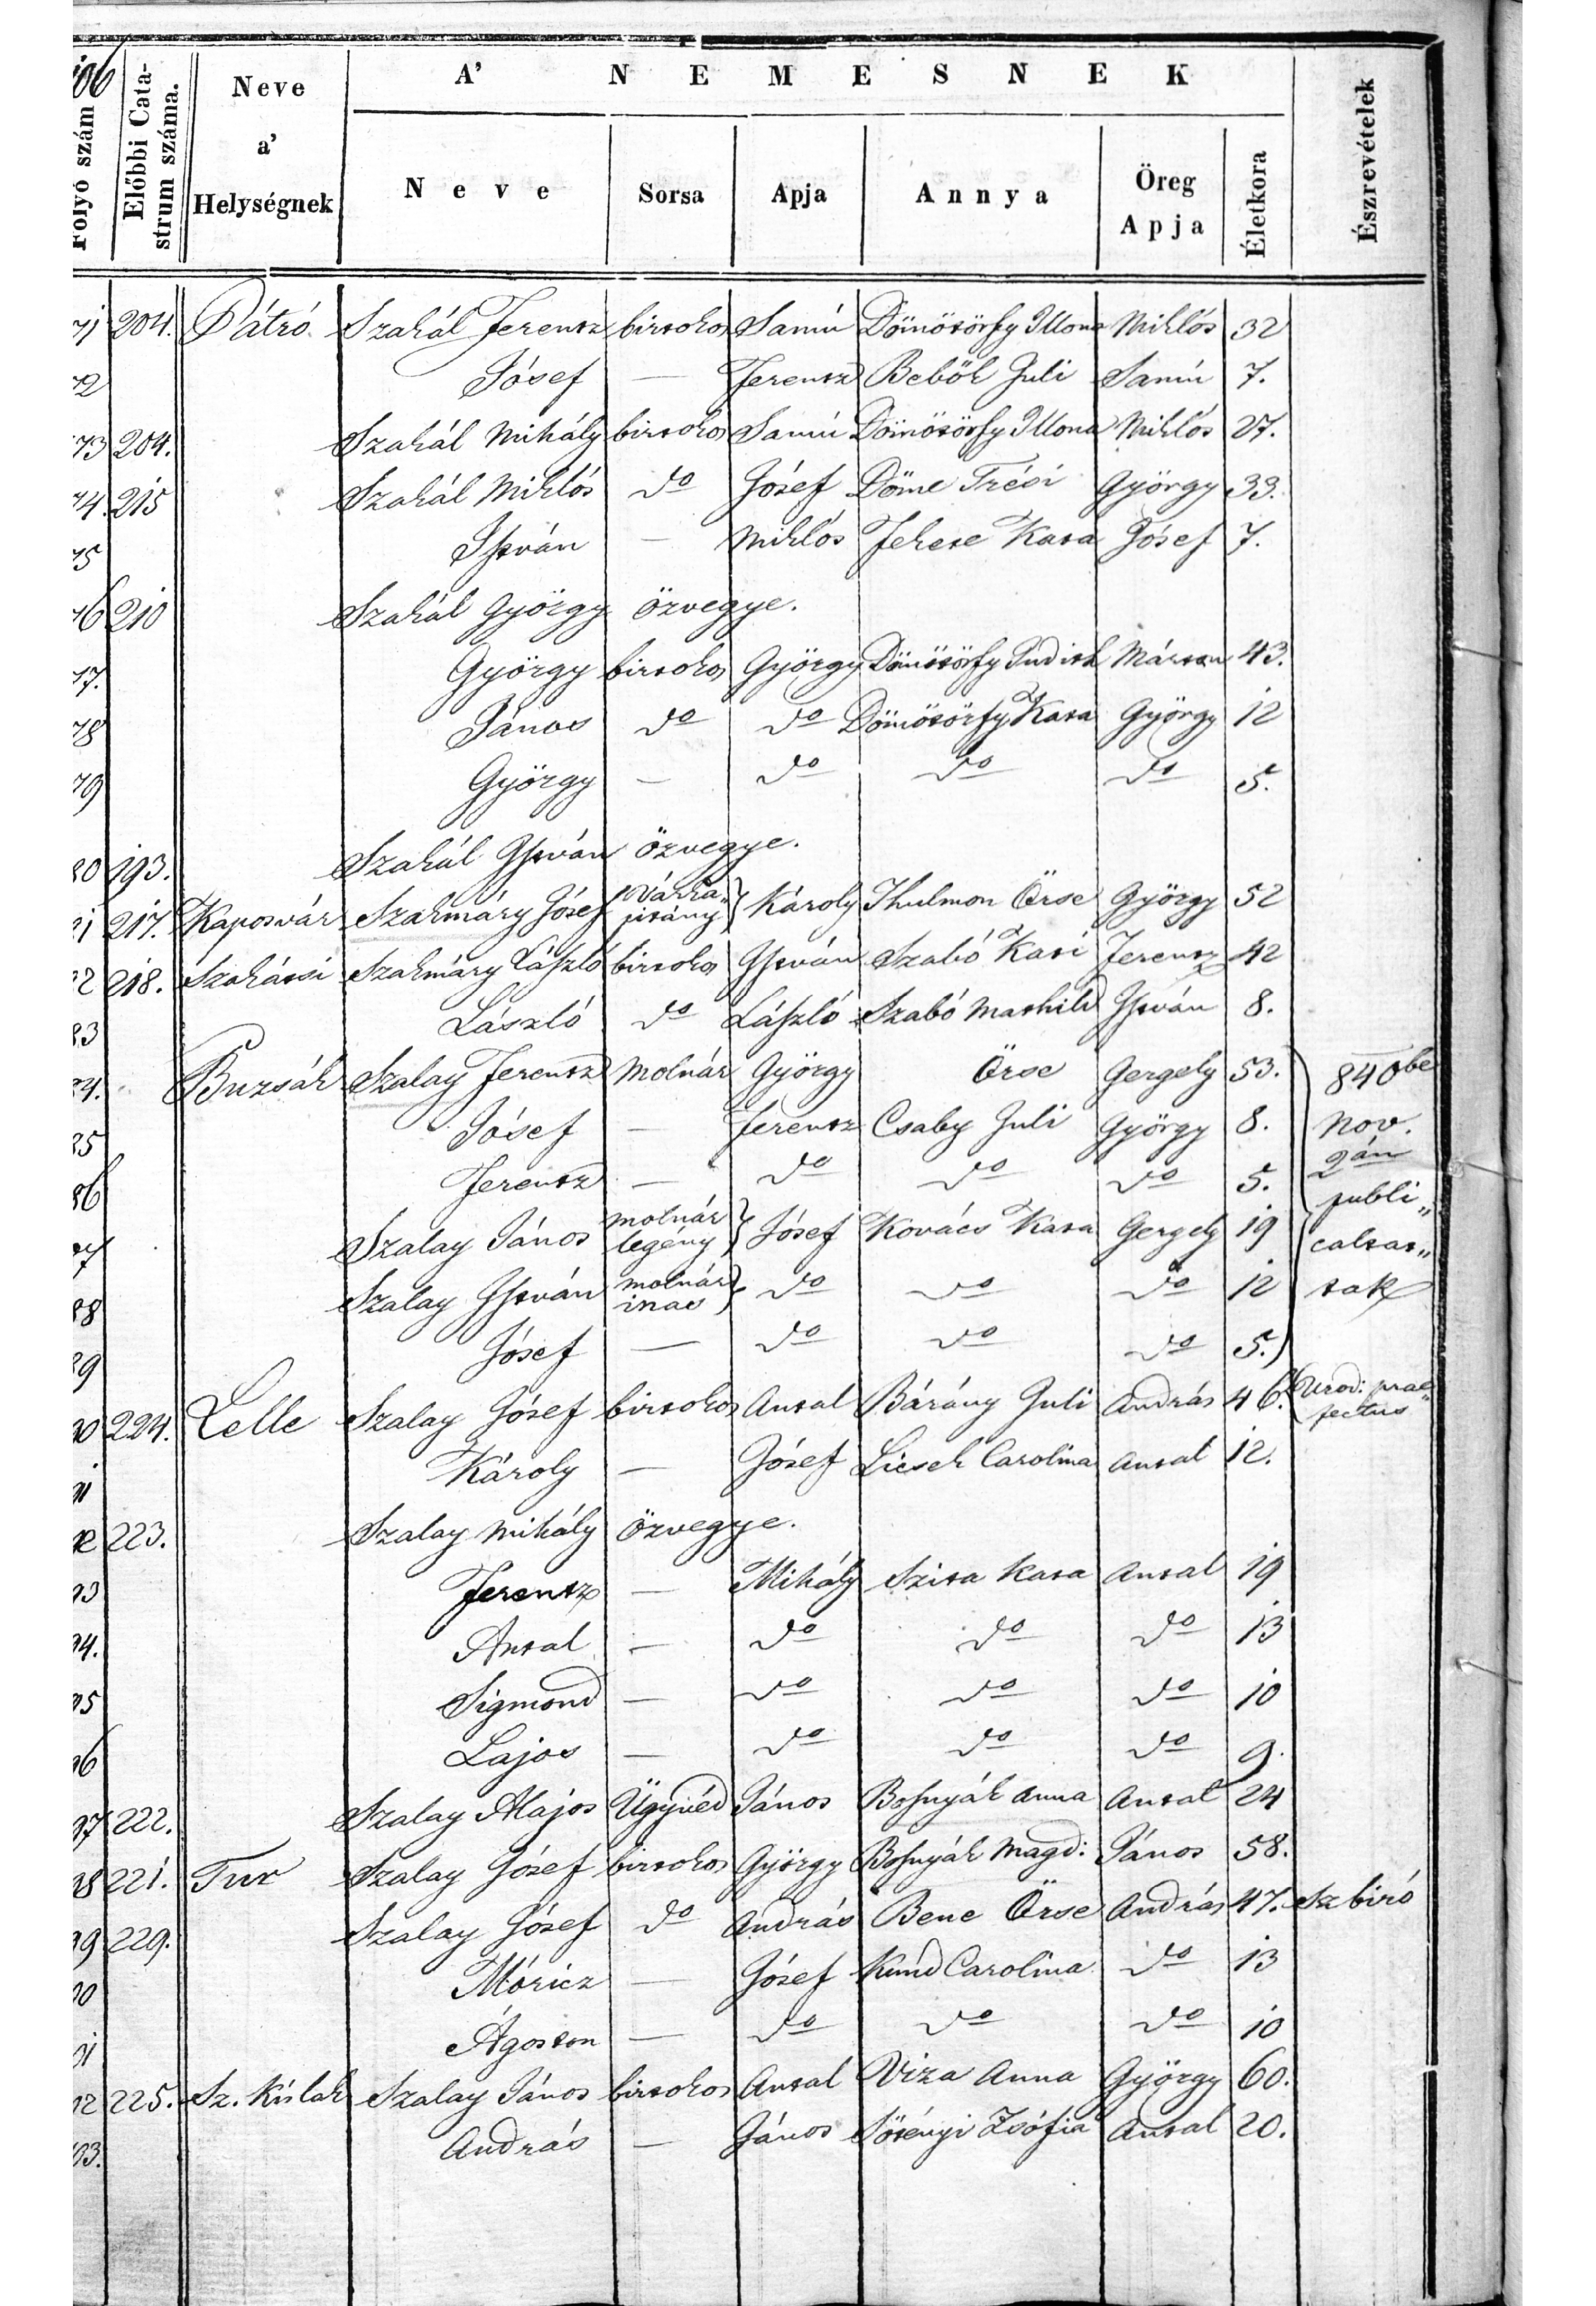 106
Folyó szám
Előbbi Catastrum száma.
Neve a' Helységnek
A' NEMESNEK
Neve Sorsa Apja Annya Öreg Apja Életkora
Észrevételek
71 204. Pátró Szakál Ferentz birtokos Samu Dömötörfy Illona Miklós 32
72 Jósef — Ferentz Bebők Juli Samu 7.
73 204. Szakál Mihály birtokos Samu Dömötörfy Illona Miklós 27.
74. 215 Szakál Miklós do Jósef Döme Trési György 33.
75 István — Miklós Fekete Kata Jósef 7.
76 210 Szakál György özvegye.
77. György birtokos György Dömötörfy Judith Márton 43.
78 János do do Dömötörfy Kata György 12
79 György — do do do 5.
80 193. Szakál István özvegye.
81 217. Kaposvár Szakmáry Jósef várka„pitány } Károly Thulmon Örse György 52
82 218. Szakátsi Szakmáry László birtokos István Szabó Kati Ferentz 42
83 László do László Szabó Mathild István 8.
84. Buzsák Szalay Ferentz Molnár György Örse Gergely 53. 840be
85 Jósef — Ferentz Csaby Juli György 8. Nov.
86 Ferentz — do do do 5. 2án publi„
87 Szalay János molnár legény } Jósef Kovács Kata Gergely 19 caltat„
88 Szalay István molnár inas } do do do 12 tak
89 Jósef — do do do 5.
90 224. Lelle Szalay Jósef birtokos Antal Bárány Juli András 46. Urod: prae„fectus
91 Károly — Jósef Licsek Carolina Antal 12.
92 223. Szalay Mihály özvegye.
93 Ferentz — Mihály Szita Kata Antal 19
94. Antal — do do do 13
95 Sigmond — do do do 10
96 Lajos — do do do 9.
97 222. Szalay Alajos Ügyvéd János Bosnyák Anna Antal 24
98 221. Tur Szalay Jósef birtokos György Bosnyák Magd: János 58.
99 229. Szalay Jósef do András Bene Örse András 47. Sz biró
00 Móricz — Jósef Kund Carolina do 13
01 Ágoston — do do do 10
02 225. Sz. Kislak Szalay János birtokos Antal Viza Anna György 60.
03. András — János Sörényi Zsófia Antal 20.